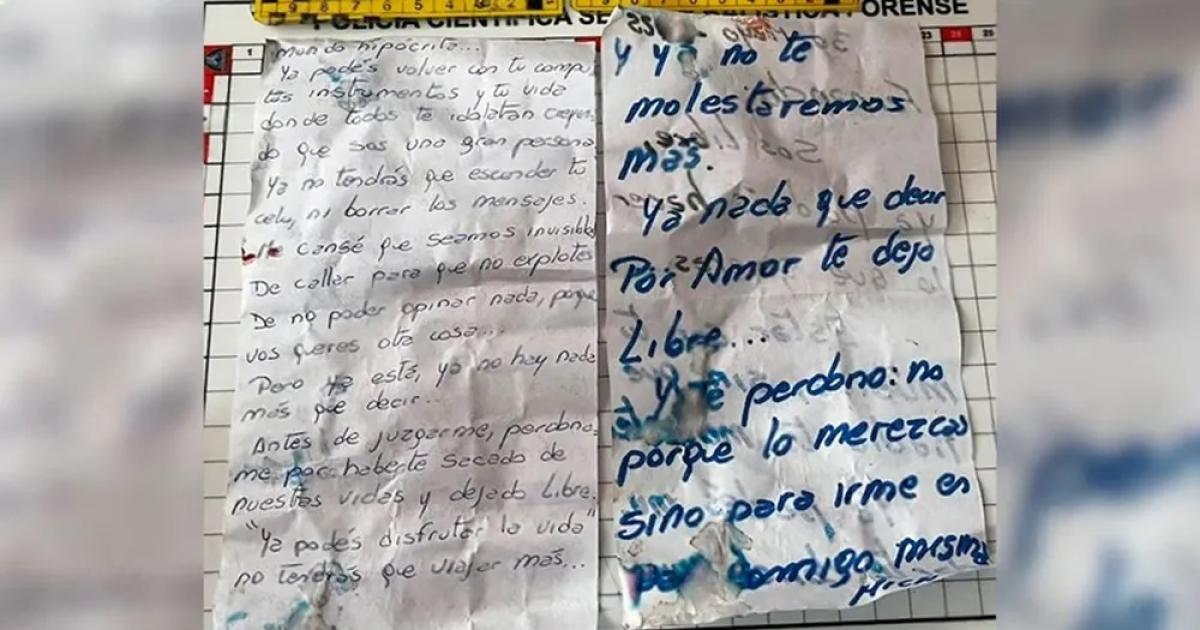 POLICÍA CIENTÍFICA
FORENSE
mundo hipócrita...
Ya podés volver con tu compu,
tus instrumentos y tu vida
donde todos te idolatran creyen
do que sos una gran persona
Ya no tendrás que esconder tu
celu, ni borrar los mensajes.
Me cansé que seamos invisibles
De callar para que no explotes
De no poder opinar nada, porque
vos queres otra cosa...
Pero ya está, ya no hay nada
más que decir...
Antes de juzgarme, perdona
me por haberte sacado de
nuestras vidas y dejado libre.
"Ya podés disfrutar la vida"
no tendrás que viajar más...
Y ya no te
molestaremos
más.
Ya nada que decir
Por Amor te dejo
Libre...
Y te perdono: no
porque lo merezcas
sino para irme en
paz conmigo misma